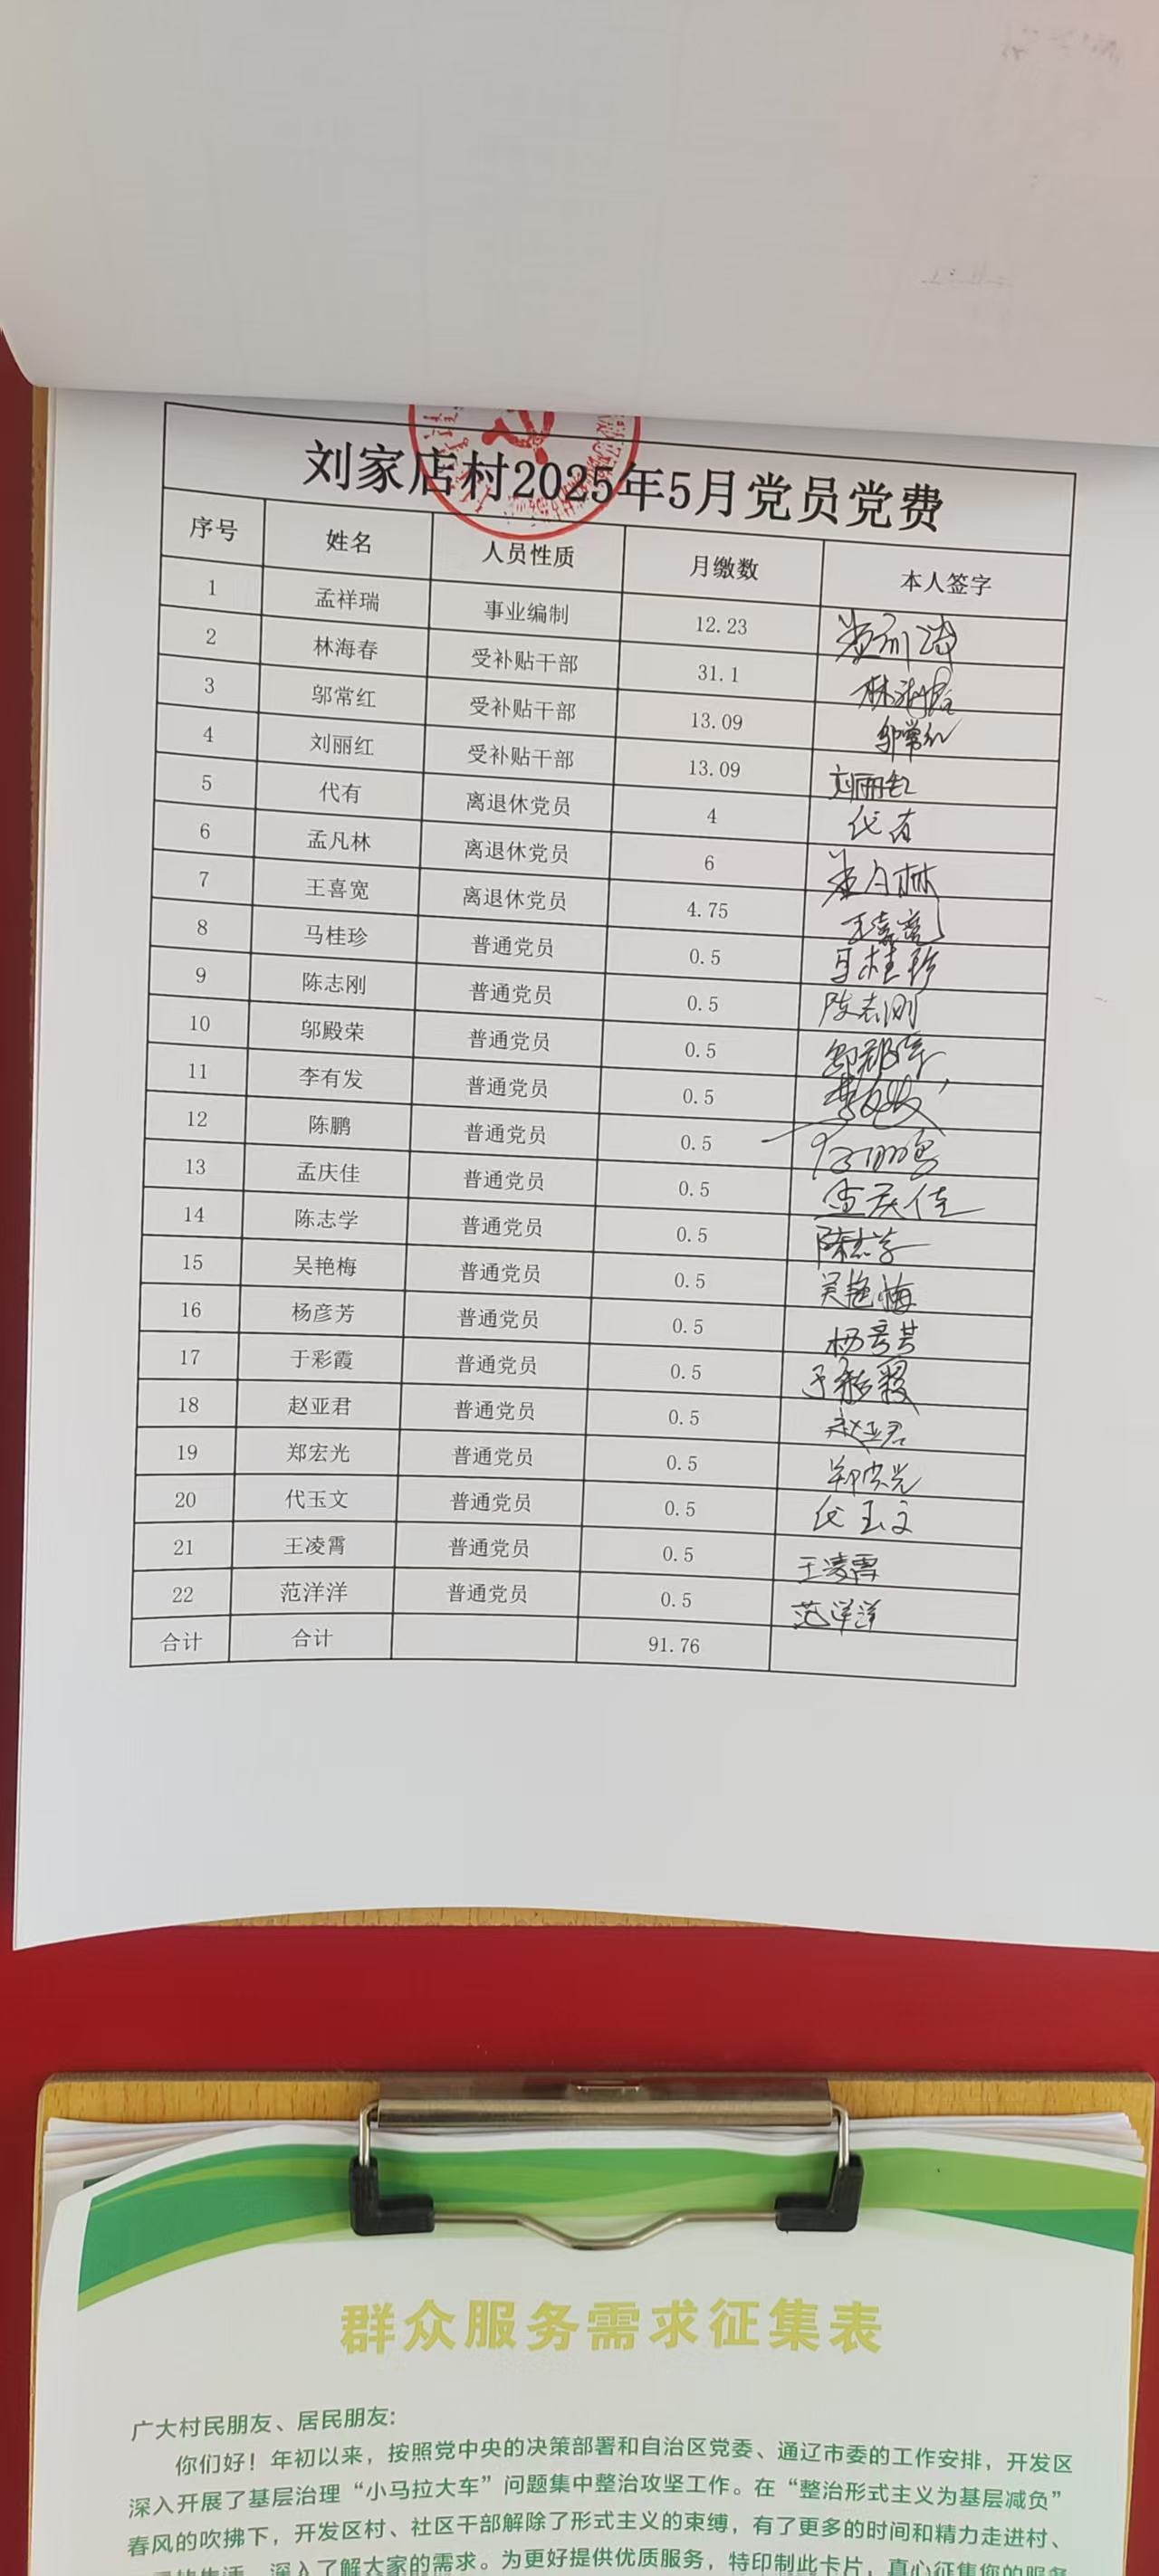 刘家店村2025年5月党员党费
序号 姓名 人员性质 月缴数 本人签字
1 孟祥瑞 事业编制 12.23
2 林海春 受补贴干部 31.1 林海春
3 邬常红 受补贴干部 13.09 邬常红
4 刘丽红 受补贴干部 13.09 刘丽红
5 代有 离退休党员 4 代有
6 孟凡林 离退休党员 6 孟凡林
7 王喜宽 离退休党员 4.75 王喜宽
8 马桂珍 普通党员 0.5 马桂珍
9 陈志刚 普通党员 0.5 陈志刚
10 邬殿荣 普通党员 0.5 邬殿荣
11 李有发 普通党员 0.5 李有发
12 陈鹏 普通党员 0.5
13 孟庆佳 普通党员 0.5 孟庆佳
14 陈志学 普通党员 0.5 陈志学
15 吴艳梅 普通党员 0.5 吴艳梅
16 杨彦芳 普通党员 0.5 杨彦芳
17 于彩霞 普通党员 0.5 于彩霞
18 赵亚君 普通党员 0.5 赵亚君
19 郑宏光 普通党员 0.5 郑宏光
20 代玉文 普通党员 0.5 代玉文
21 王凌霄 普通党员 0.5 王凌霄
22 范洋洋 普通党员 0.5 范洋洋
合计 合计 91.76
群众服务需求征集表
广大村民朋友、居民朋友:
你们好！年初以来，按照党中央的决策部署和自治区党委、通辽市委的工作安排，开发区
深入开展了基层治理“小马拉大车”问题集中整治攻坚工作。在“整治形式主义为基层减负”
春风的吹拂下，开发区村、社区干部解除了形式主义的束缚，有了更多的时间和精力走进村、
深入了解大家的需求。为更好提供优质服务，特印制此卡片，真心征集您的服务